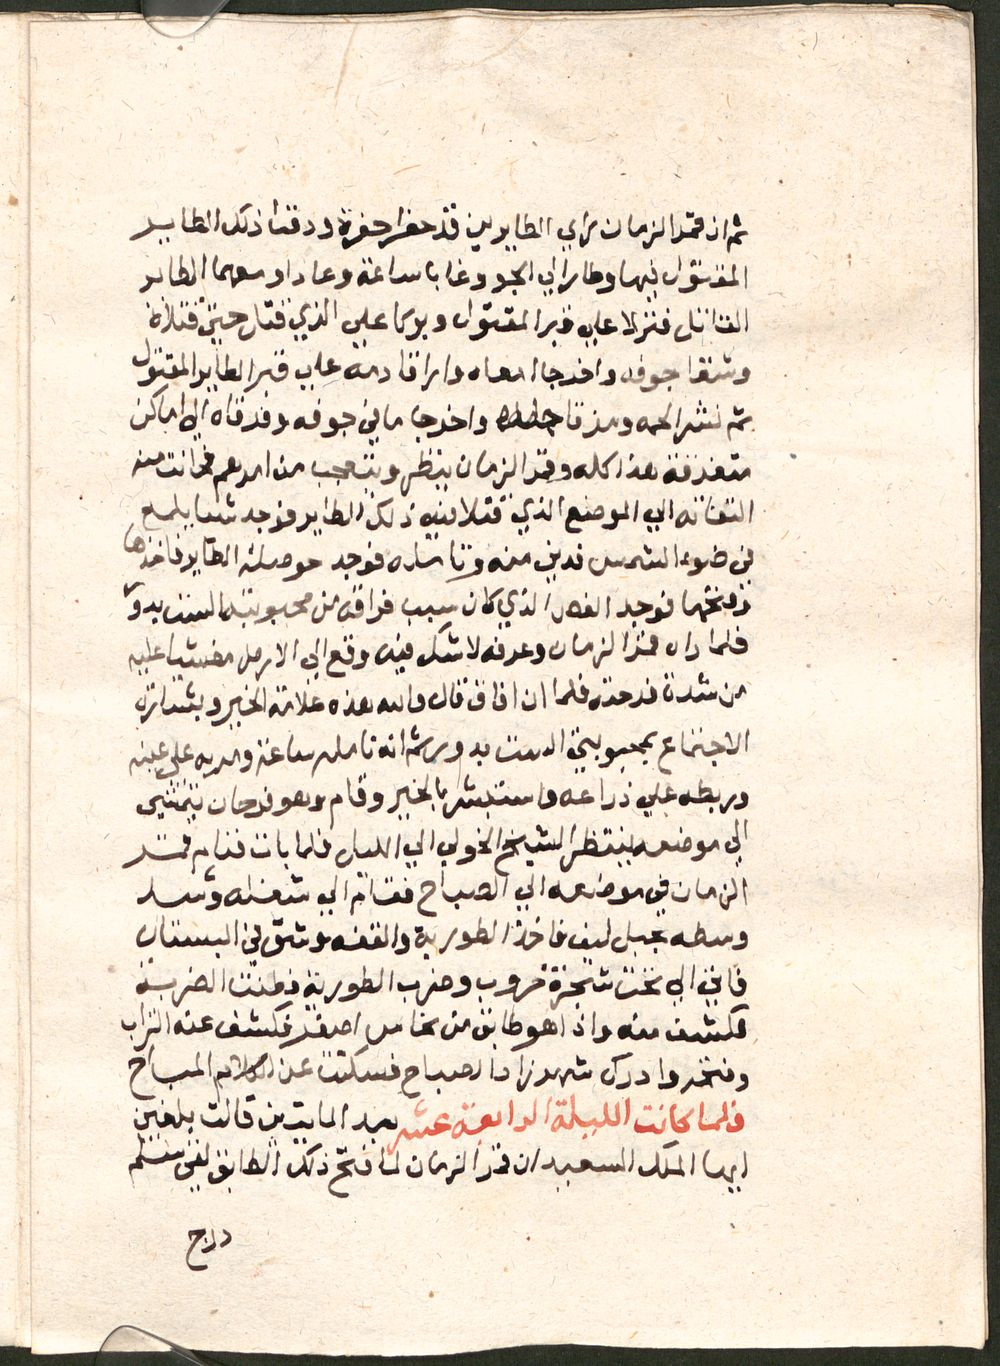 ثم ان قمر الزمان راي الطايرين قد حفرا حفرة ودفنا ذلك الطاير
المقتول فيها وطارا الي الجو وغابا ساعة وعادا ومعهما الطاير
القاتل فنزلا علي قبر المقتول وبركا علي الذي قتل حتي قتلاه
وشقا جوفه واخرجا امعاه واراقا دمه علي قبر الطاير المقتول
ثم نثرا لحمه ومزقا جلده واخرجا ما في جوفه وفرقاه الي اماكن
متفرقة هذا كله وقمر الزمان ينظر ويتعجب من امرهم فحانت منه
التفاته الي الموضع الذي قتلا فيه ذلك الطاير فوجد شيا يلمع
في ضوء الشمس فدني منه وتامله فوجد حوصلة الطاير فاخذها
وفتحها فوجد الفص الذي كان سبب فراقه من محبوبته الست بدور
فلما راه قمر الزمان وعرفه لا شك فيه وقع الي الارض مغشيا عليه
من شدة فرحته فلما ان افاق قال والله هذه علامة الخير وبشارة
الاجتماع بمحبوبتي الست بدور ثم انه تامله ساعة ومر به علي عينه
وربطه علي ذراعه واستبشر بالخير وقام وهو فرحان يتمشي
الي موضعه ينتظر الشيخ الخولي الي الليل فلما بات فنام قمر
الزمان في موضعه الي الصباح فقام الي شغله وشد
وسطه بحبل ليف فاخذ الطورية والقفه وشق في البستان
فاتي الي تحت شجرة خروب وضرب الطورية فطنت الضربة
فكشف عنه واذا هو طابق من نحاس اصفر فكشف عنه التراب
وفتحه وادرك شهرزاد الصباح فسكتت عن الكلام المباح
فلما كانت الليلة الرابعة عشر بعد المايتين قالت بلغني
ايها الملك السعيد ان قمر الزمان لما فتح ذلك الطابق لقي سلم
درج